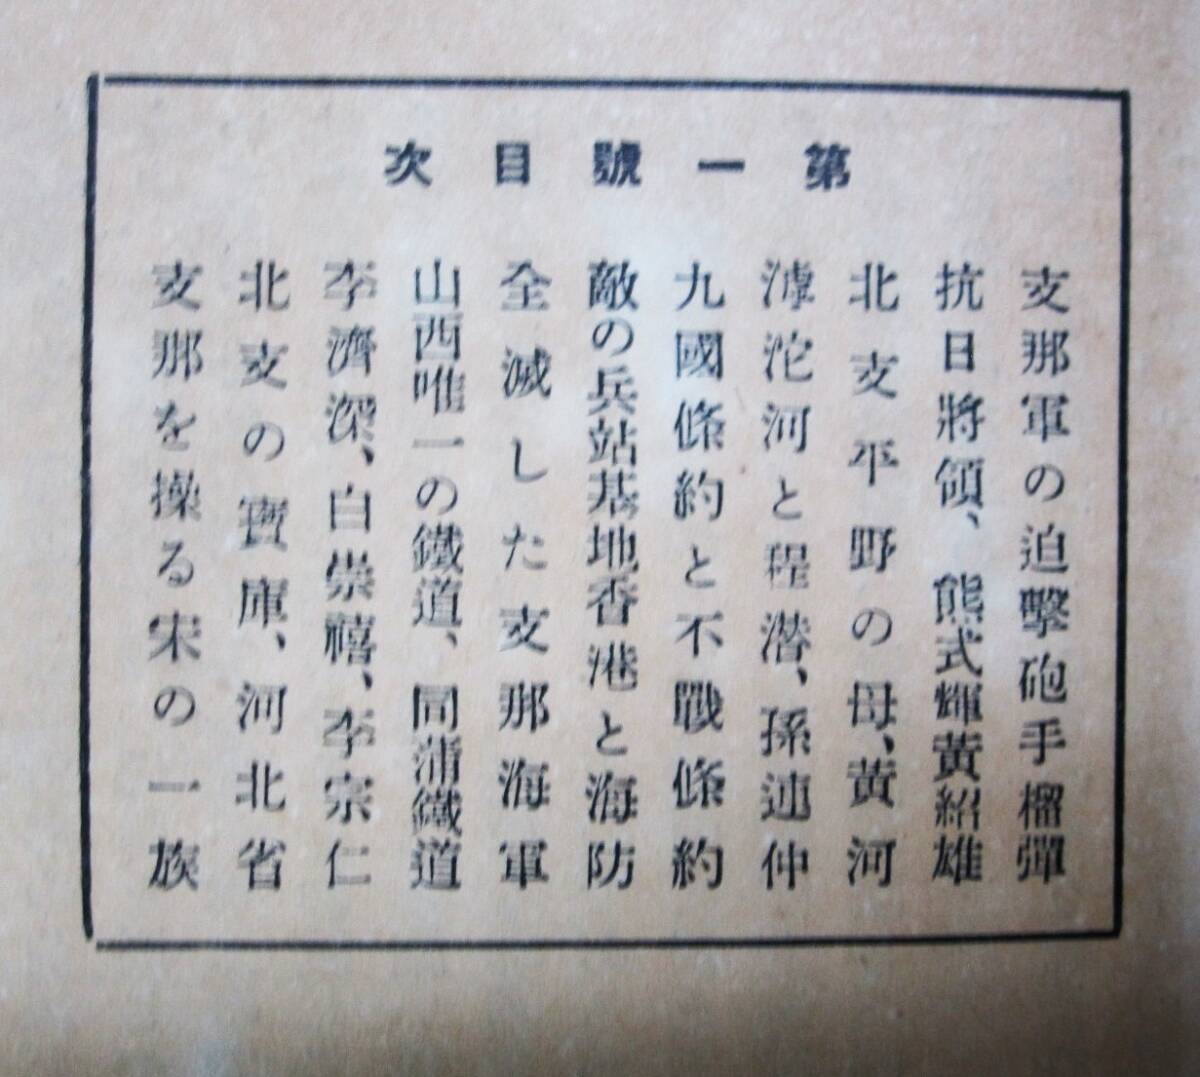 第一號目次
支那軍の迫擊砲手榴彈
抗日將領、熊式輝黃紹雄
北支平野の母、黃河
滹沱河と程潜、孫連仲
九國條約と不戰條約
敵の兵站基地香港と海防
全滅した支那海軍
山西唯一の鐵道、同蒲鐵道
李濟深、白崇禧、李宗仁
北支の寶庫、河北省
支那を操る宋の一族